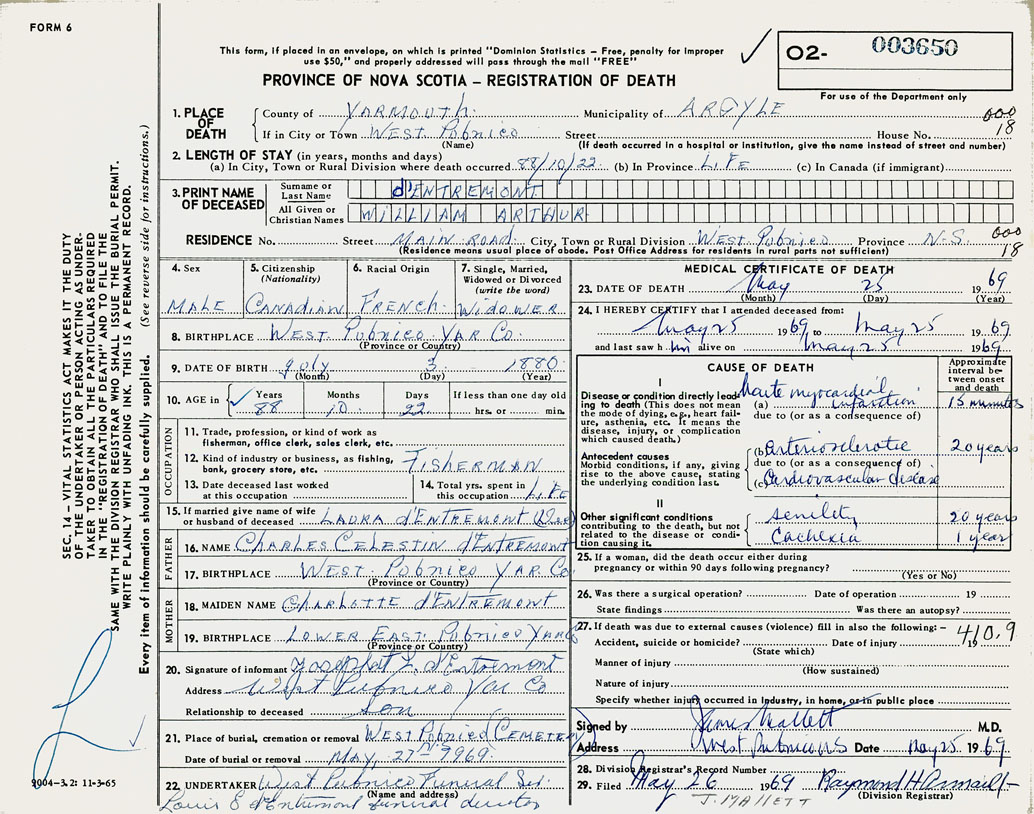 FORM 6
This form, if placed in an envelope, on which is printed "Dominion Statistics – Free, penalty for improper
use $50," and properly addressed will pass through the mail "FREE"
PROVINCE OF NOVA SCOTIA – REGISTRATION OF DEATH
O2- 003650
For use of the Department only
1. PLACE OF DEATH
County of YARMOUTH Municipality of ARGYLE
If in City or Town WEST PUBNICO Street House No.
(Name) (If death occurred in a hospital or institution, give the name instead of street and number)
000
18
2. LENGTH OF STAY (in years, months and days)
(a) In City, Town or Rural Division where death occurred 88/10/22 (b) In Province LIFE (c) In Canada (if immigrant)
3. PRINT NAME OF DECEASED
Surname or Last Name d'ENTREMONT
All Given or Christian Names WILLIAM ARTHUR
RESIDENCE No. Street MAIN ROAD City, Town or Rural Division WEST PUBNICO Province N.S.
(Residence means usual place of abode. Post Office Address for residents in rural parts not sufficient)
000
18
4. Sex
MALE
5. Citizenship (Nationality)
CANADIAN
6. Racial Origin
FRENCH
7. Single, Married, Widowed or Divorced (write the word)
WIDOWER
8. BIRTHPLACE WEST PUBNICO YAR CO
(Province or Country)
9. DATE OF BIRTH July 3 1880
(Month) (Day) (Year)
10. AGE in Years Months Days If less than one day old
88 10 22 hrs. or min.
OCCUPATION
11. Trade, profession, or kind of work as
fisherman, office clerk, sales clerk, etc.
12. Kind of industry or business, as fishing,
bank, grocery store, etc. FISHERMAN
13. Date deceased last worked
at this occupation
14. Total yrs. spent in
this occupation LIFE
15. If married give name of wife
or husband of deceased LAURA d'ENTREMONT
FATHER
16. NAME CHARLES CELESTIN d'ENTREMONT
17. BIRTHPLACE WEST PUBNICO YAR CO
(Province or Country)
MOTHER
18. MAIDEN NAME CHARLOTTE d'ENTREMONT
19. BIRTHPLACE LOWER EAST PUBNICO YAR CO
(Province or Country)
20. Signature of informant d'Entremont
Address West Pubnico Yar Co
Relationship to deceased son
21. Place of burial, cremation or removal WEST PUBNICO CEMETERY
Date of burial or removal MAY, 27
22. UNDERTAKER West Pubnico Funeral
(Name and address)
Louis E d'Entremont funeral director
MEDICAL CERTIFICATE OF DEATH
23. DATE OF DEATH May 25 1969
(Month) (Day) (Year)
24. I HEREBY CERTIFY that I attended deceased from:
May 25 1969 to May 25 1969
and last saw him alive on May 25 1969
CAUSE OF DEATH
Approximate interval between onset and death
I
Disease or condition directly leading to death (This does not mean the mode of dying, e.g., heart failure, asthenia, etc. It means the disease, injury, or complication which caused death.)
(a) Acute myocardial infarction 15 minutes
due to (or as a consequence of)
Antecedent causes
Morbid conditions, if any, giving rise to the above cause, stating the underlying condition last.
(b) Arteriosclerotic 20 years
due to (or as a consequence of)
(c) Cardiovascular disease
II
Other significant conditions
contributing to the death, but not related to the disease or condition causing it.
senility 20 years
Cachexia 1 year
25. If a woman, did the death occur either during
pregnancy or within 90 days following pregnancy?
(Yes or No)
26. Was there a surgical operation? Date of operation 19
State findings Was there an autopsy?
27. If death was due to external causes (violence) fill in also the following:–
410.9
Accident, suicide or homicide? Date of injury 19
(State which)
Manner of injury
(How sustained)
Nature of injury
Specify whether injury occurred in Industry, in home, or in public place
Signed by James Mallett M.D.
Address West Pubnico NS Date May 25 1969
28. Division Registrar's Record Number
29. Filed May 26 1969 Raymond H
J. MALLETT (Division Registrar)
SEC. 14 – VITAL STATISTICS ACT MAKES IT THE DUTY
OF THE UNDERTAKER OR PERSON ACTING AS UNDER-
TAKER TO OBTAIN ALL THE PARTICULARS REQUIRED
IN THE "REGISTRATION OF DEATH" AND TO FILE THE
SAME WITH THE DIVISION REGISTRAR WHO SHALL ISSUE THE BURIAL PERMIT.
WRITE PLAINLY WITH UNFADING INK. THIS IS A PERMANENT RECORD.
Every item of information should be carefully supplied. (See reverse side for instructions.)
9004-3.2: 11-3-65